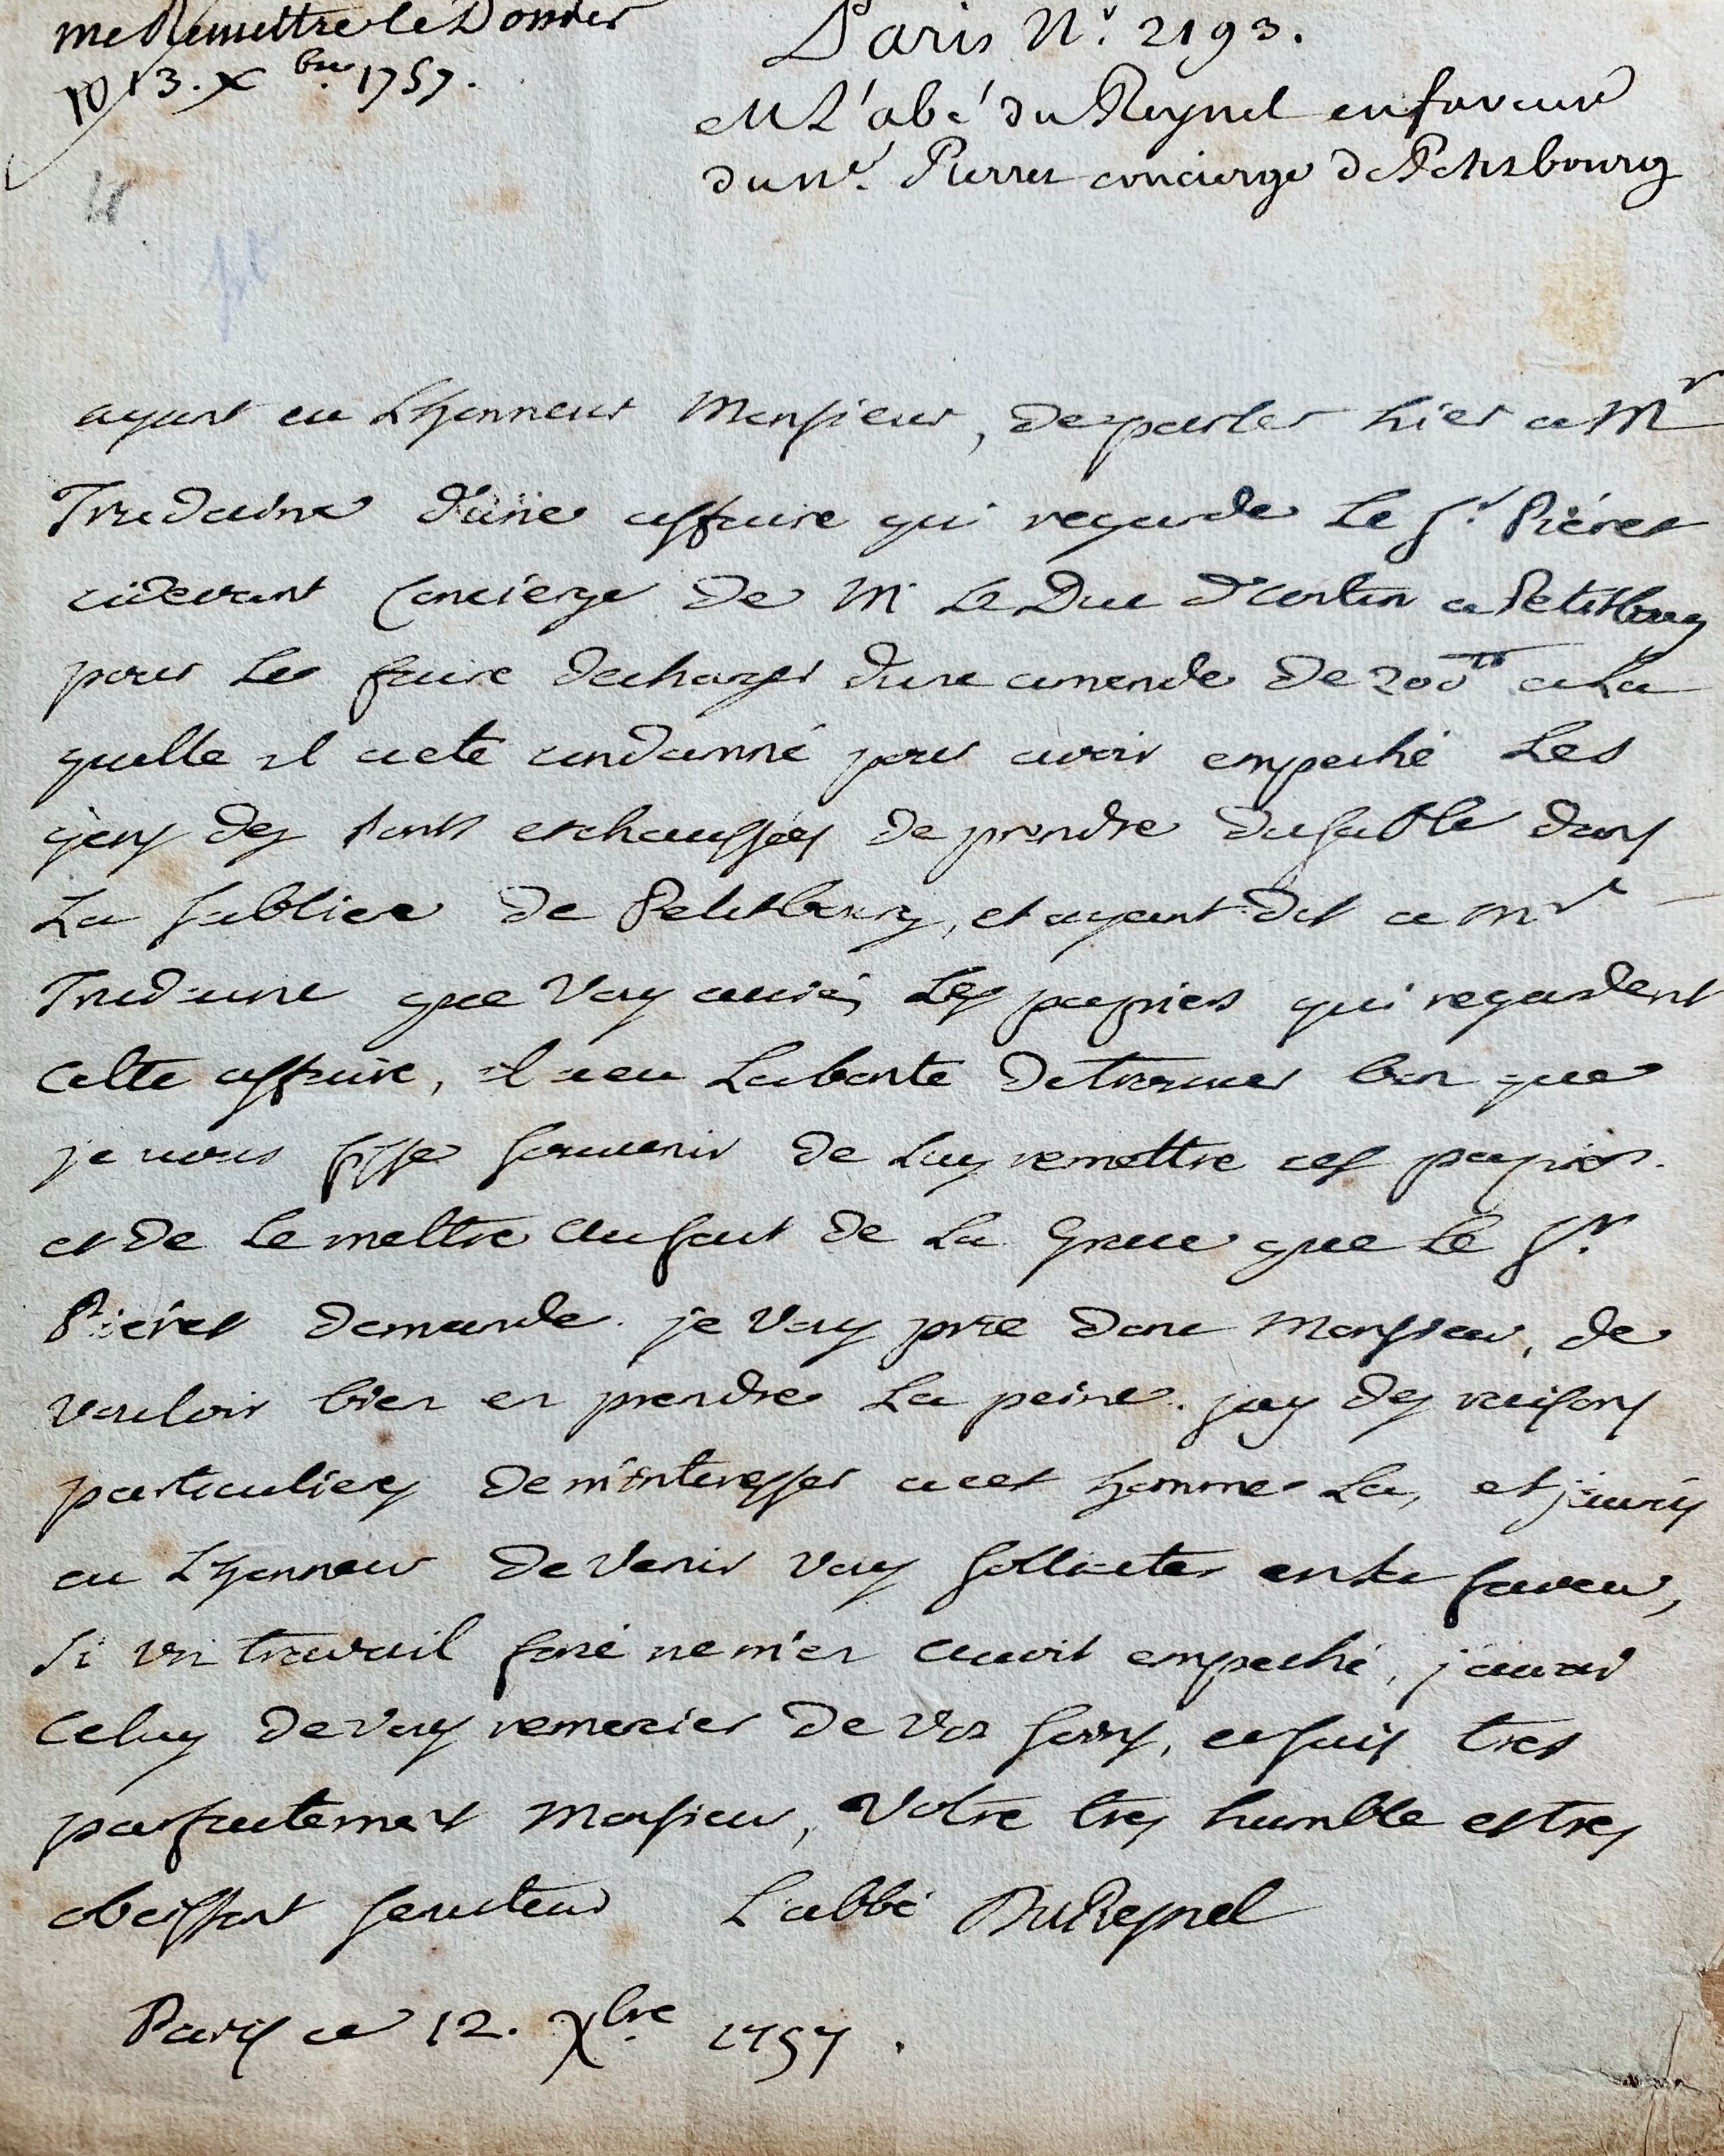 me Remettre le Dossier
13. Xbre 1757.
Paris N.° 2193.
M L'abé du Reynel en faveur
du Sr. Pierret concierge de Petitsbourg
ayant eu Lhonneur Monsieur, de parler hier a Mr
Trudaine d'une affaire qui regarde Le Sr Piéret
cidevant Concierge de Mr Le Duc d'Antin a Petitbourg
pour Le faire decharger d'une amende de 200tt a La
quelle il a eté condamné pour avoir empeché Les
gens des Ponts et chaussées de prendre du sable dans
La sabliere de Petitbourg, et ayant dit a Mr
Trudaine que Vous aviés Les papiers qui regardent
cette affaire, il a eu La bonté de trouver bon que
je vous fisse souvenir de Luy remettre ces papiers.
et de Le mettre au fait de La Grace que Le Sr.
Piéret demande. je Vous prie donc Monsieur, de
vouloir bien en prendre La peine. jay des raisons
particulieres de m'interesser a cet homme La, et j'aurois
eu Lhonneur de Venir Vous solliciter en sa faveur,
Si un travail forcé ne m'en avoit empeché, j'aurai
celuy de Vous remercier de Vos soins, et suis tres
parfaitement Monsieur, Votre tres humble et tres
obeissant serviteur L'abbé Du Resnel
Paris ce 12. Xbre 1757.